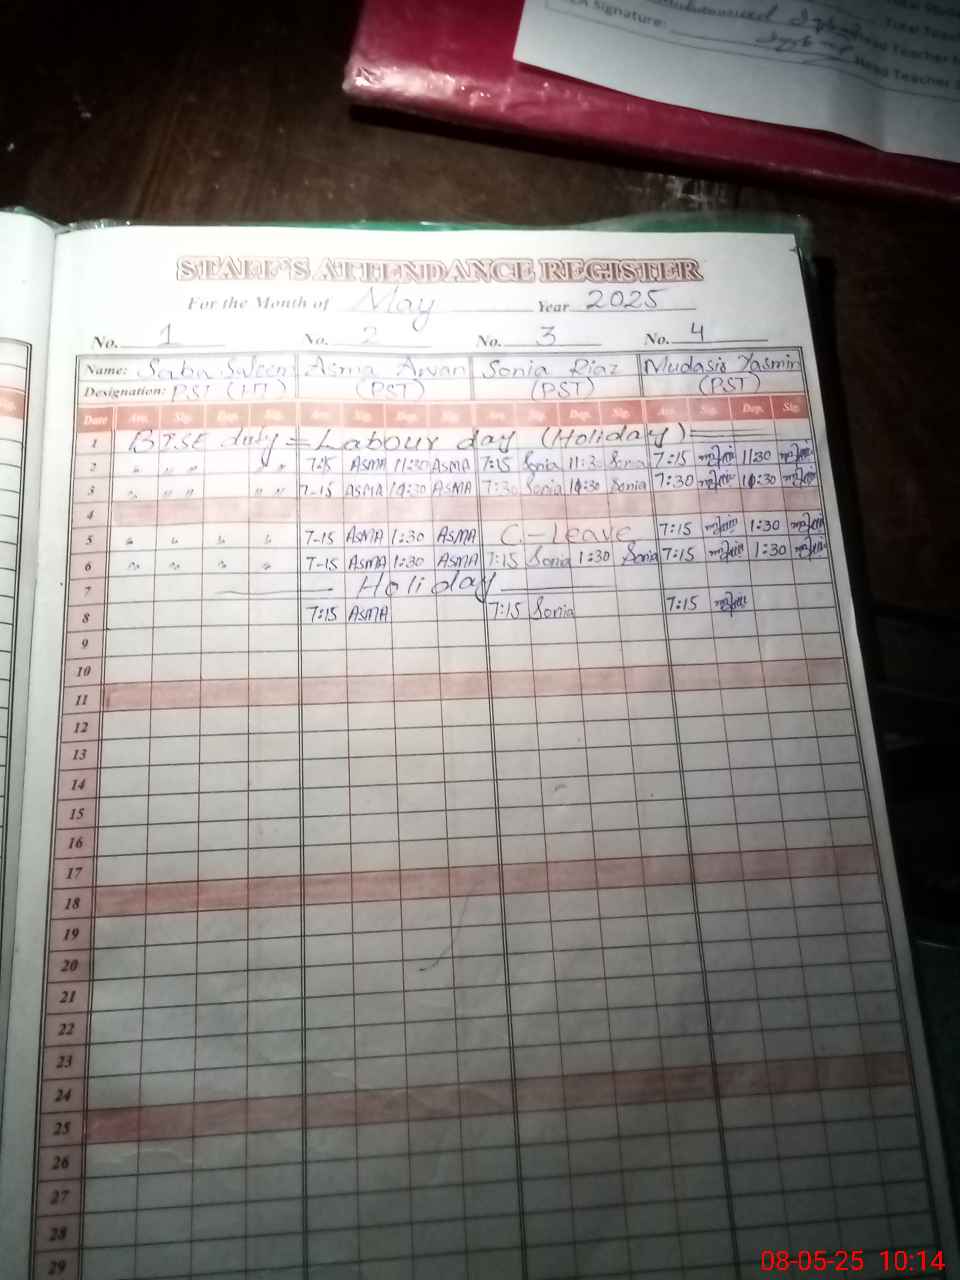 Total Teac
CA Signature:
Head Teacher
Head Teacher
STAFF'S ATTENDANCE REGISTER
For the Month of May Year 2025
No. 1 No. 2 No. 3 No. 4
Name: Saba Saleem Asma Awan Sonia Riaz Mudasir Yasmin
Designation: PST (HT) (PST) (PST) (PST)
Date Arr. Sig. Dep. Sig. Arr. Sig. Dep. Sig. Arr. Sig. Dep. Sig. Arr. Sig. Dep. Sig.
1 BISE duty = Labour day (Holiday)
2 " " " " " 7:15 ASMA 11:30 ASMA 7:15 Sonia 11:30 Sonia 7:15 11:30
3 " " " " " 7-15 ASMA ASMA 7:30 Sonia Sonia 7:30
4
5 " " " " 7-15 ASMA 1:30 ASMA C-Leave 7:15 1:30
6 " " " " 7-15 ASMA 1:30 ASMA 7:15 Sonia 1:30 Sonia 7:15 1:30
7 Holiday
8 7:15 ASMA 7:15 Sonia 7:15
9
10
11
12
13
14
15
16
17
18
19
20
21
22
23
24
25
26
27
28
29
08-05-25 10:14